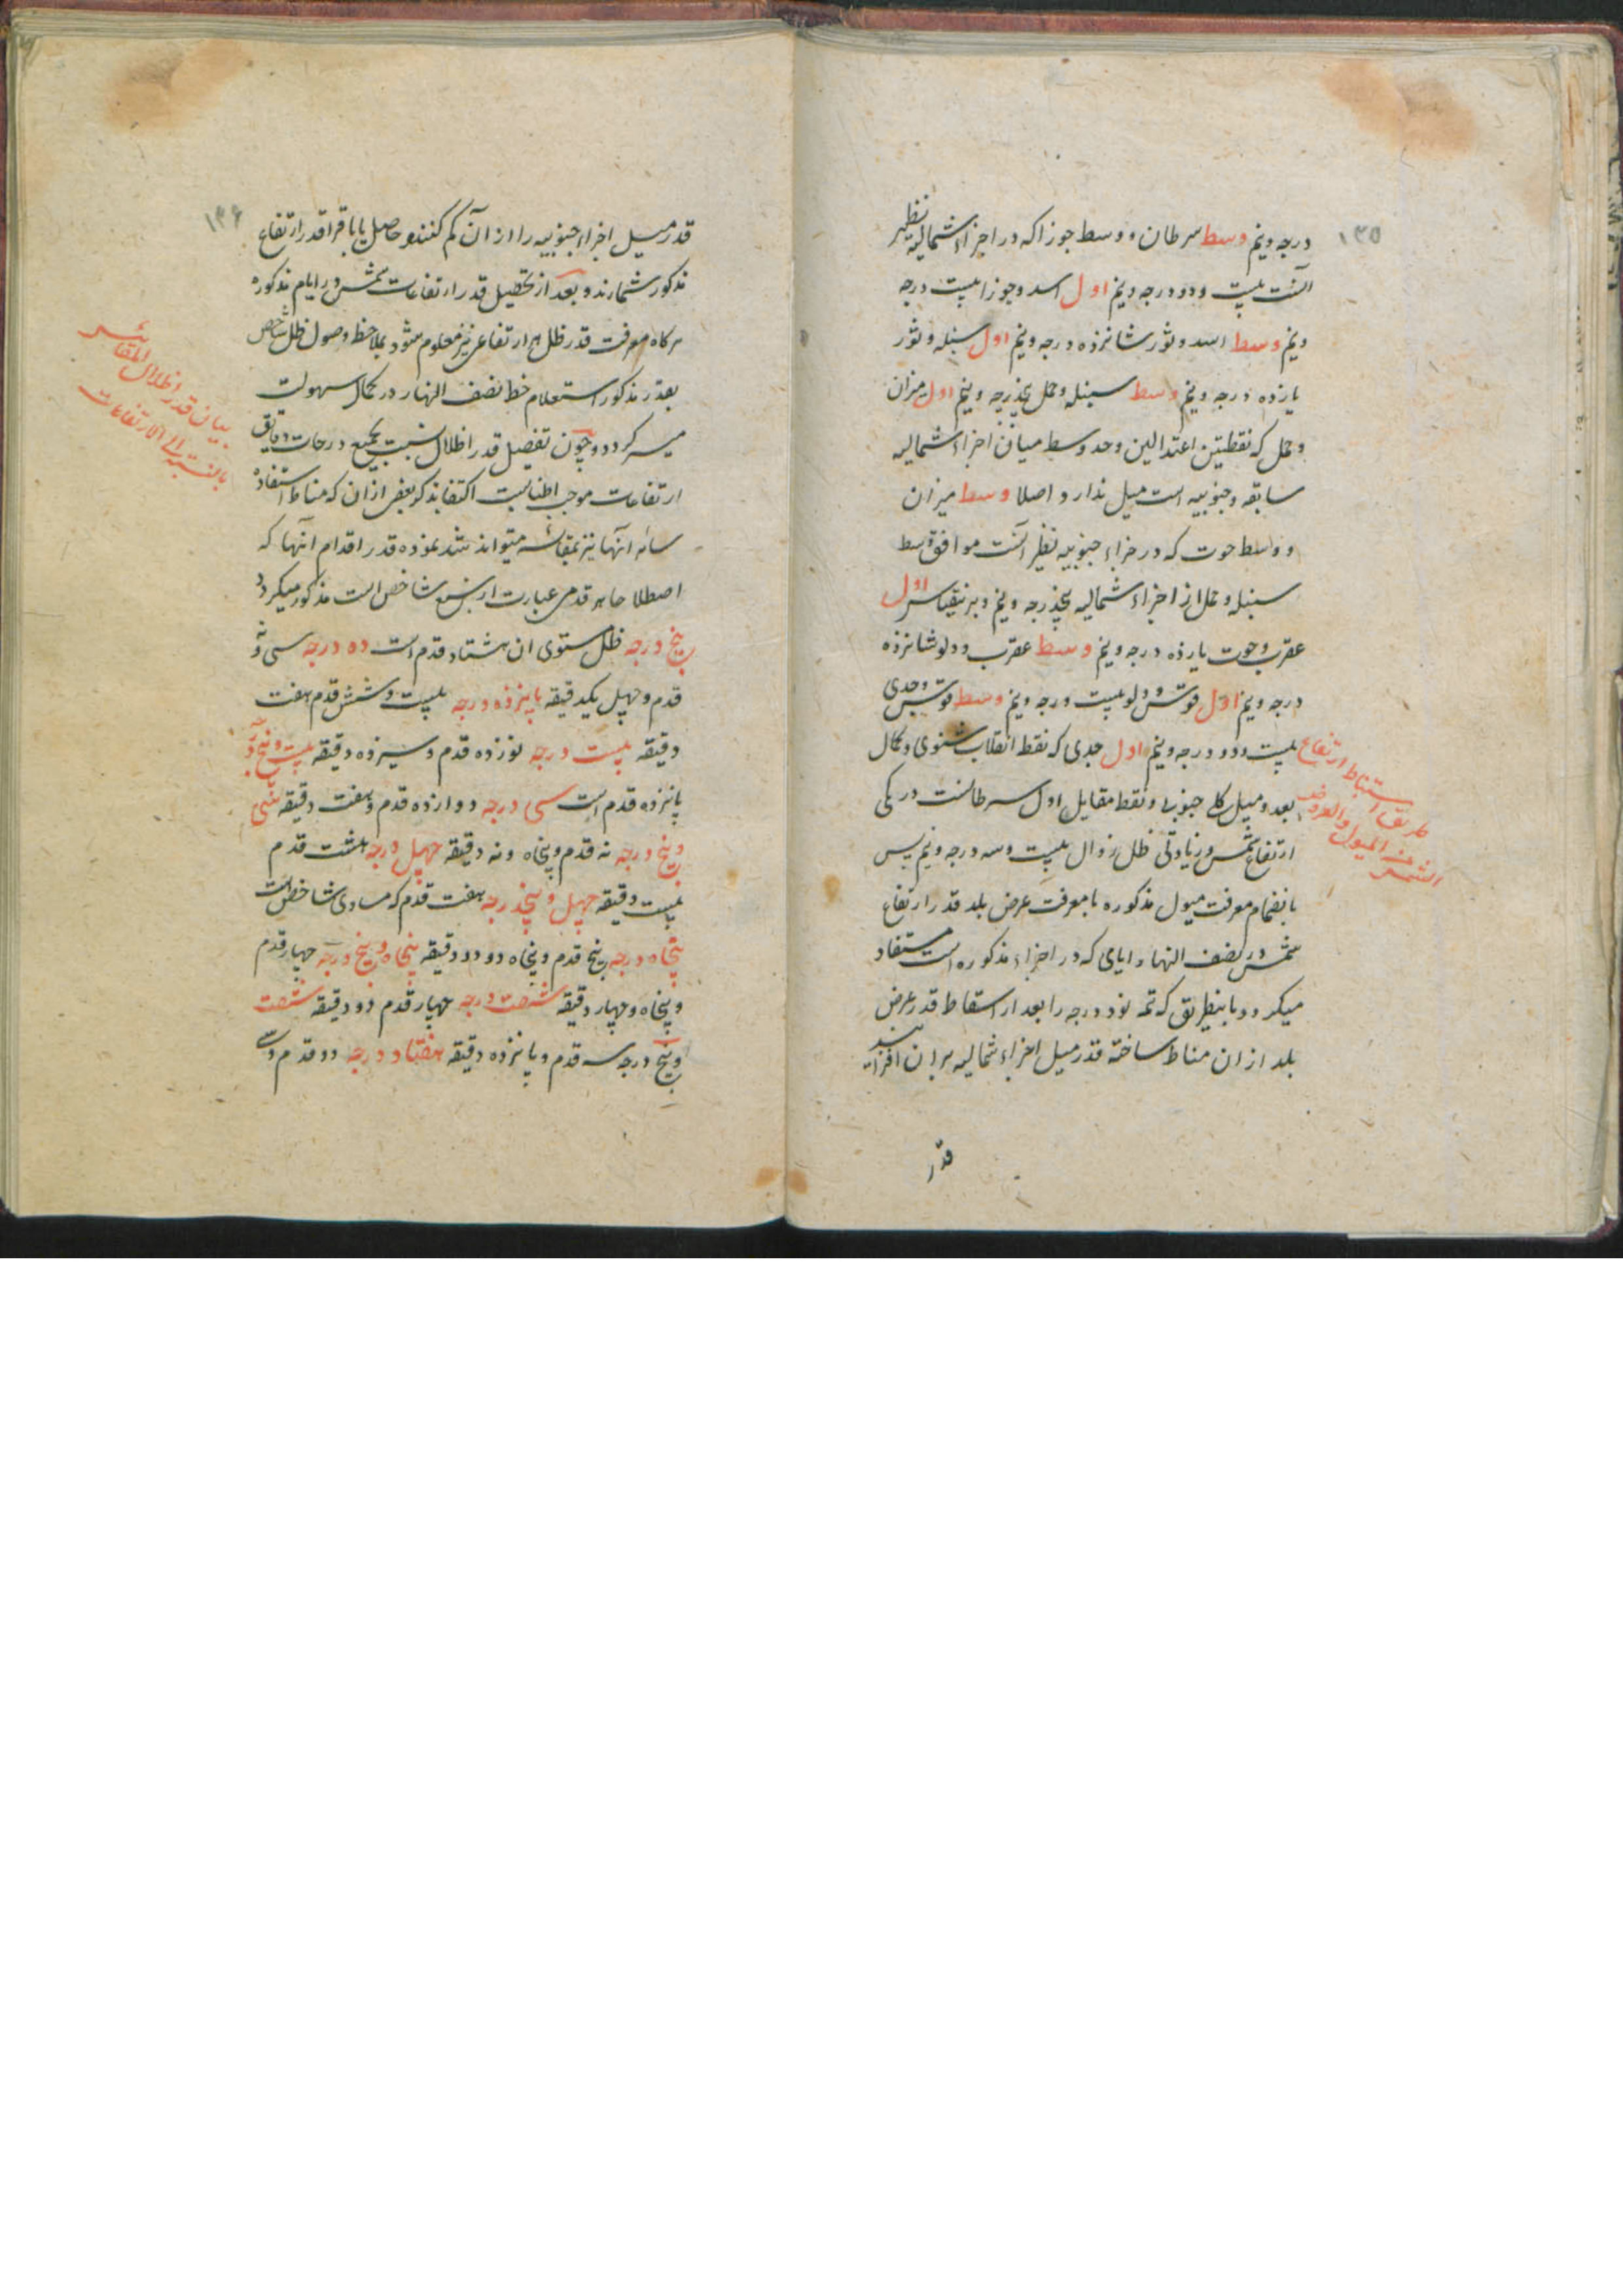 ۱۳۵
درجه و نیم وسط سرطان و وسط جوزا که در اجزاء شمالیه نظیر
آنست بیست و دو درجه و نیم اول اسد و جوزا بیست درجه
و نیم وسط اسد و ثور شانزده درجه و نیم اول سنبله و ثور
یازده درجه و نیم وسط سنبله و حمل پنجدرجه و نیم اول میزان
و حمل که نقطتین اعتدالین وحد وسط میان اجزاء شمالیه
سابقه و جنوبیه است میل ندارد اصلا وسط میزان
و واسط حوت که در جزاء جنوبیه نظیر آنست موافق وسط
سنبله و حمل از اجزاء شمالیه پنجدرجه و نیم و برینقیاس اول
عقرب و حوت یازده درجه و نیم وسط عقرب و دلو شانزده
درجه و نیم اول قوس و دلو بیست درجه و نیم وسط قوس و جدی
بیست و دو درجه و نیم اول جدی که نقطه انقلاب شتوی و کمال
بعد و میل کلی جنوبی و نقطه مقابل اول سرطانست در یکی
ارتفاع شمس و زیادتی ظل زوال بیست و سه درجه و نیم پس
بانضمام معرفت میول مذکوره با معرفت عرض بلد قدر ارتفاع
شمس در نصف النهار ایامی که در اجزاء مذکوره است مستفاد
میکردد باینطریق که تمه نود درجه را بعد از اسقاط قدر عرض
بلد از ان مناط ساخته قدر میل اجزاء شمالیه بران افزایند
طریق استنباط ارتفاع
الشمس من المیول والعروض
قدر
۱۳۶
قدر میل اجزاء جنوبیه را از آن کم کنند و حاصل یا باقی را قدر ارتفاع
مذکور شمارند و بعد از تحصیل قدر ارتفاعات شمس در ایام مذکوره
هرکاه معرفت قدر ظل هر ارتفاعی نیز معلوم شود بملاحظه وصول ظل شاخص
بقدر مذکور استعلام خط نصف النهار در کمال سهولت
میسر کردد و چون تفصیل قدر اظلال نسبت بجمیع درجات و دقایق
ارتفاعات موجب اطنابست اکتفا بذکر بعضی از ان که مناط استفاده
سائر آنها نیز بمقائسه میتواند شد نموده قدر اقدام آنها که
اصطلاحا هر قدمی عبارت از سبع شاخص است مذکور میکردد
پنج درجه ظل مستوی ان هشتاد قدم است ده درجه سی و نه
قدم و چهل یکدقیقه پانزده درجه بیست و شش قدم هفت
دقیقه بیست درجه نوزده قدم و سیزده دقیقه بیست و پنج درجه
پانزده قدم است سی درجه دوازده قدم و هفت دقیقه سی
و پنج درجه نه قدم و پنجاه و نه دقیقه چهل درجه هشت قدم
بیست دقیقه چهل و پنجدرجه هفت قدم که مساوی شاخص است
پنجاه درجه پنج قدم و پنجاه و دو دقیقه پنجاه و پنج درجه چهار قدم
و پنجاه و چهار دقیقه شصت درجه چهار قدم دو دقیقه شصت
و پنج درجه سه قدم و پانزده دقیقه هفتاد درجه دو قدم و سی
بیان قدر اظلال المقائیس
بالنسبة الی الارتفاعات